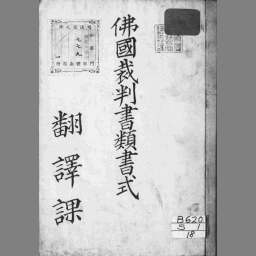 佛國裁判書類書式
翻譯課
B620
S 1
18